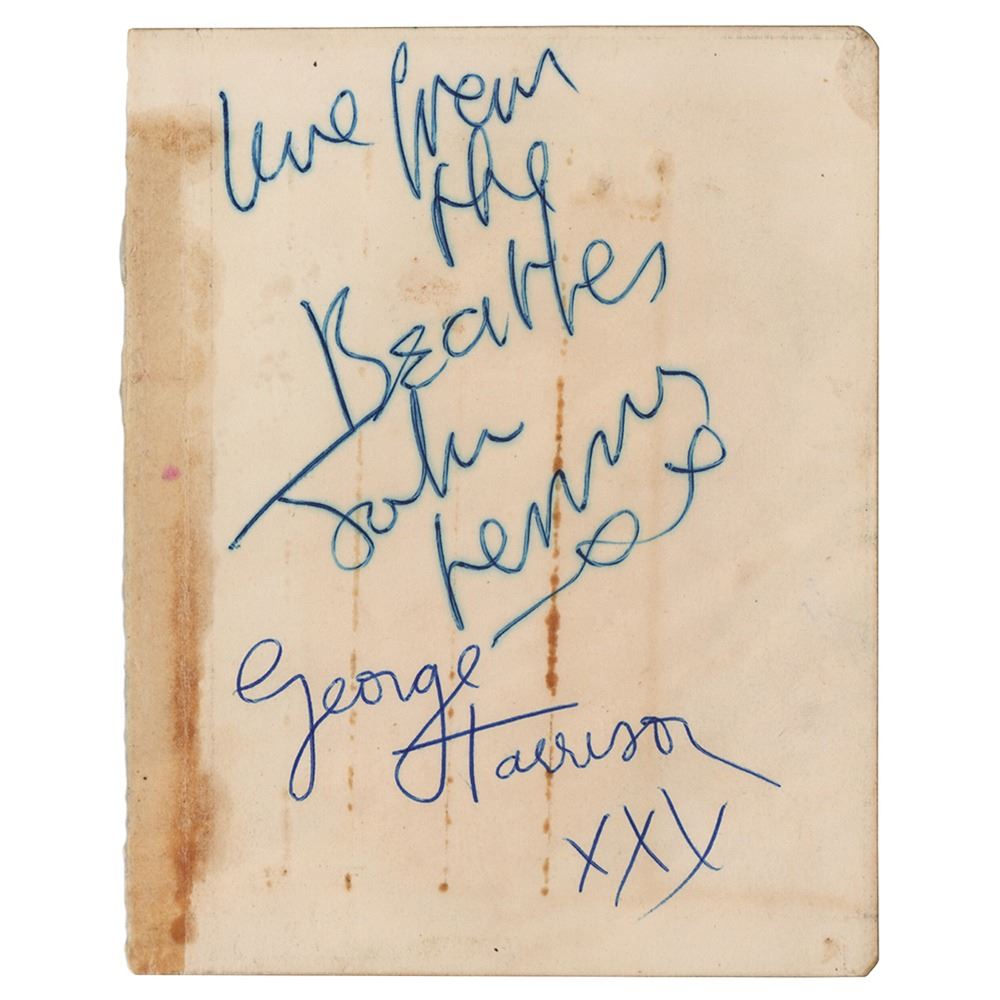 love from
the
Beatles
John
Lennon
George
Harrison
xxx